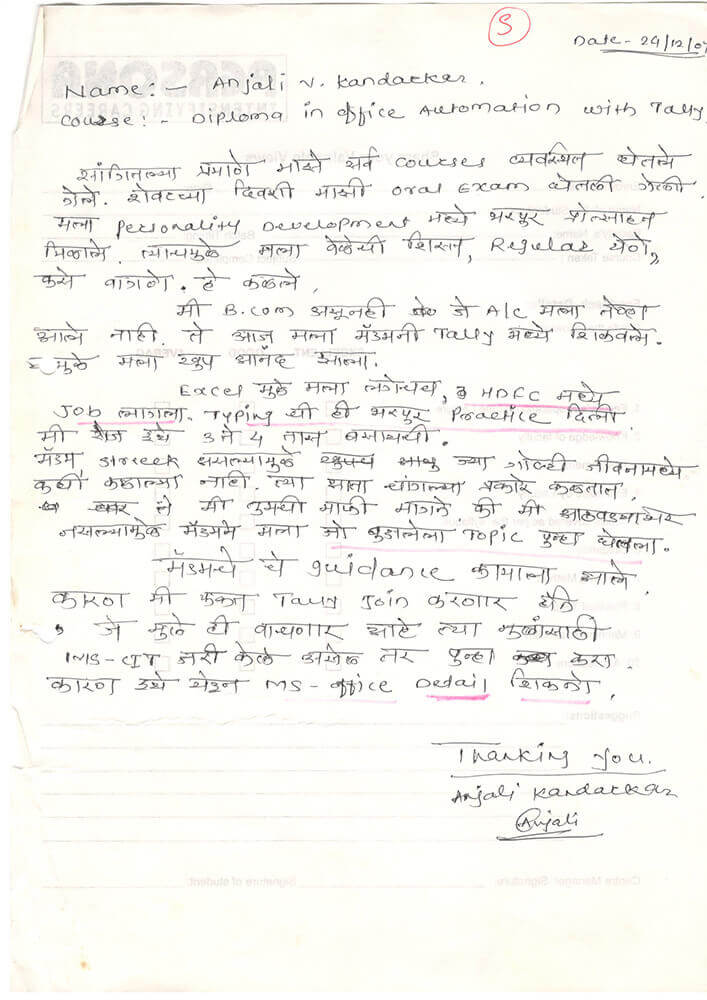 5
Date - 24/12/07
Name:- Anjali V. Kandarkar.
Course:- Diploma in office Automation with Tally
सांगितल्या प्रमाणे माझे सर्व courses व्यवस्थित घेतले
गेले. शेवटच्या दिवशी माझी oral Exam घेतली गेली
मला Personality Development मध्ये भरपुर प्रोत्साहन
मिळाले. त्याच्यामुळे मला वेळेची शिस्त, Regular येणे,
कसे वागणे. हे कळले.
मी B.com असूनही जे A/c मला तेव्हा
आले नाही. ते आज मला मॅडमनी Tally मध्ये शिकवले.
मुळे मला खुप आनंद झाला.
Excel मुळे मला लगेचच, HDFC मध्ये
Job लागला. Typing ची ही भरपुर Practice दिली
मी रोज इथे 3 ते 4 तास बसायची.
मॅडम streek असल्यामुळे ज्या गोष्टी जीवनामध्ये
कधी कळाल्या नाही. त्या आता चांगल्या प्रकारे कळतात.
मी तुमची माफी मागते की मी
नसल्यामुळे मॅडमने मला जो बुडालेला Topic पुन्हा घेतला.
मॅडमचे चे guidance कामाला आले.
कारण मी फक्त Tally Join करणार होते
जे मुले ही वाचणार आहे त्या मुलांसाठी
MS-CIT जरी केले असेल तर पुन्हा करा
कारण इथे येऊन MS-office Detail शिकलो.
Thanking You.
Anjali Kandarkar
Anjali
PERSONA
INTENSIFYING CAREERS
Suggestions:
Centre Manager Signature
Signature of student